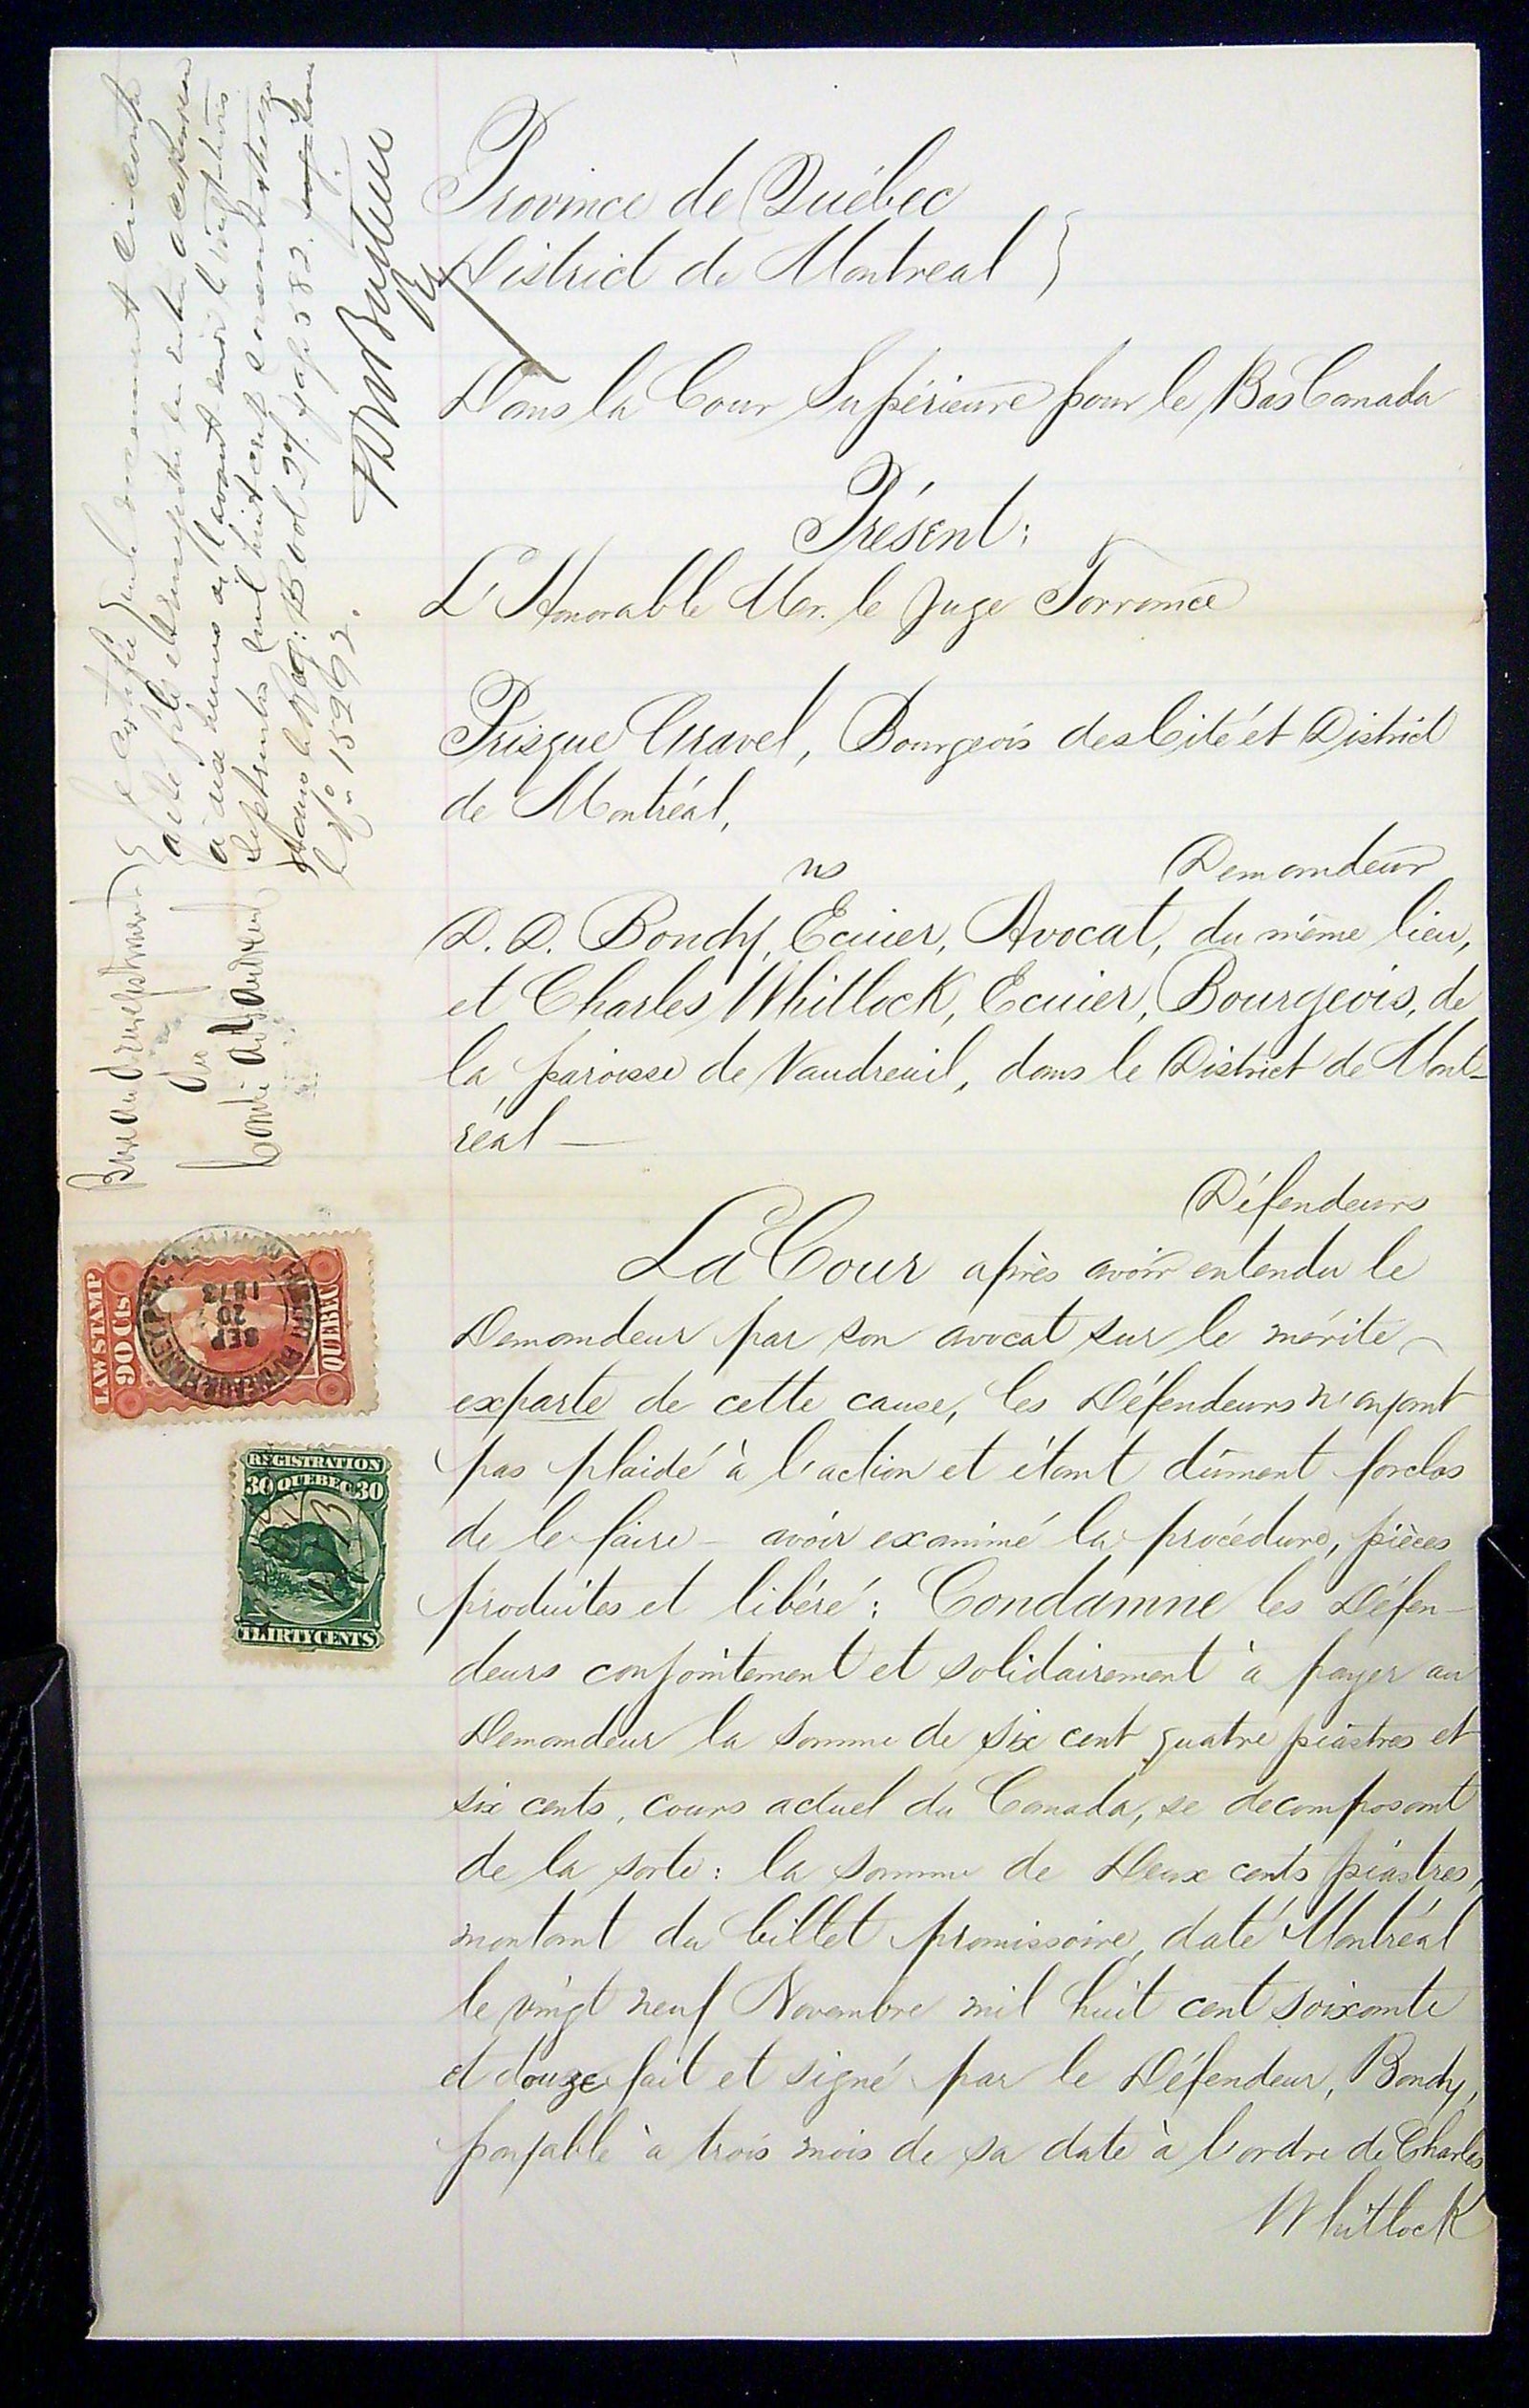 Province de Québec
District de Montreal }
Dans la Cour Supérieure pour le Bas Canada
Présent:
L'Honorable Mr. le Juge Torrance
Prisque Gravel, Bourgeois des Cité et District
de Montréal,
vs Demandeur
D. D. Bondy, Ecuier, Avocat, du même lieu,
et Charles Whitlock, Ecuier, Bourgeois, de
la paroisse de Vaudreuil, dans le District de Mont-
réal —
Défendeurs
La Cour après avoir entendu le
Demandeur par son avocat sur le mérite
exparte de cette cause, les Défendeurs n'ayant
pas plaidé à l'action et étant dûment forclos
de le faire – avoir examiné la procédure, pièces
produites et libéré: Condamne les Défen-
deurs conjointement et solidairement à payer au
Demandeur la somme de six cent quatre piastres et
six cents, cours actuel du Canada, se decomposant
de la sorte: la somme de Deux cents piastres,
montant du billet promissoire, daté Montréal
le vingt neuf Novembre mil huit cent soixante
et douze fait et signé par le Défendeur, Bondy,
payable à trois mois de sa date à l'ordre de Charles
Whitlock
Bureau d'enregistrement
du
Comté de Vaudreuil
Je certifie que le document ci contre
a été et enregistré en entier
à dix heures de l'avant midi le vingt
Septembre mil huit cent soixante et treize
dans le Reg: B vol 29. page 582.
le No. 15292.
LAW STAMP
90 Cts
QUEBEC
SEP
20
1873
REGISTRATION
30 QUEBEC 30
THIRTY CENTS